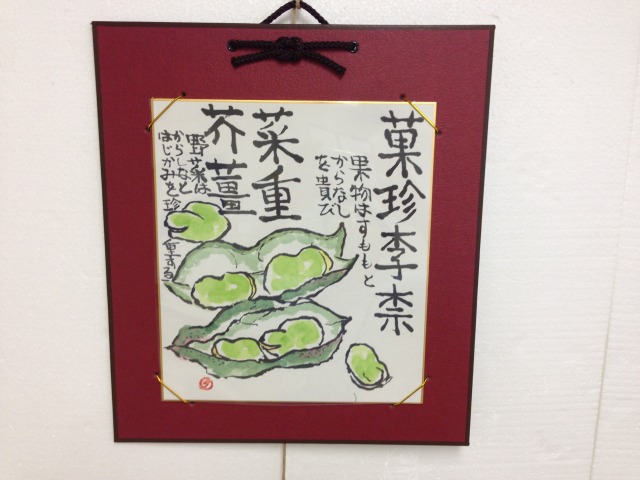 菓珍李柰
果物はすももと
からなし
を貴び
菜重
芥薑
野菜は
からしなと
はじかみを珍重する